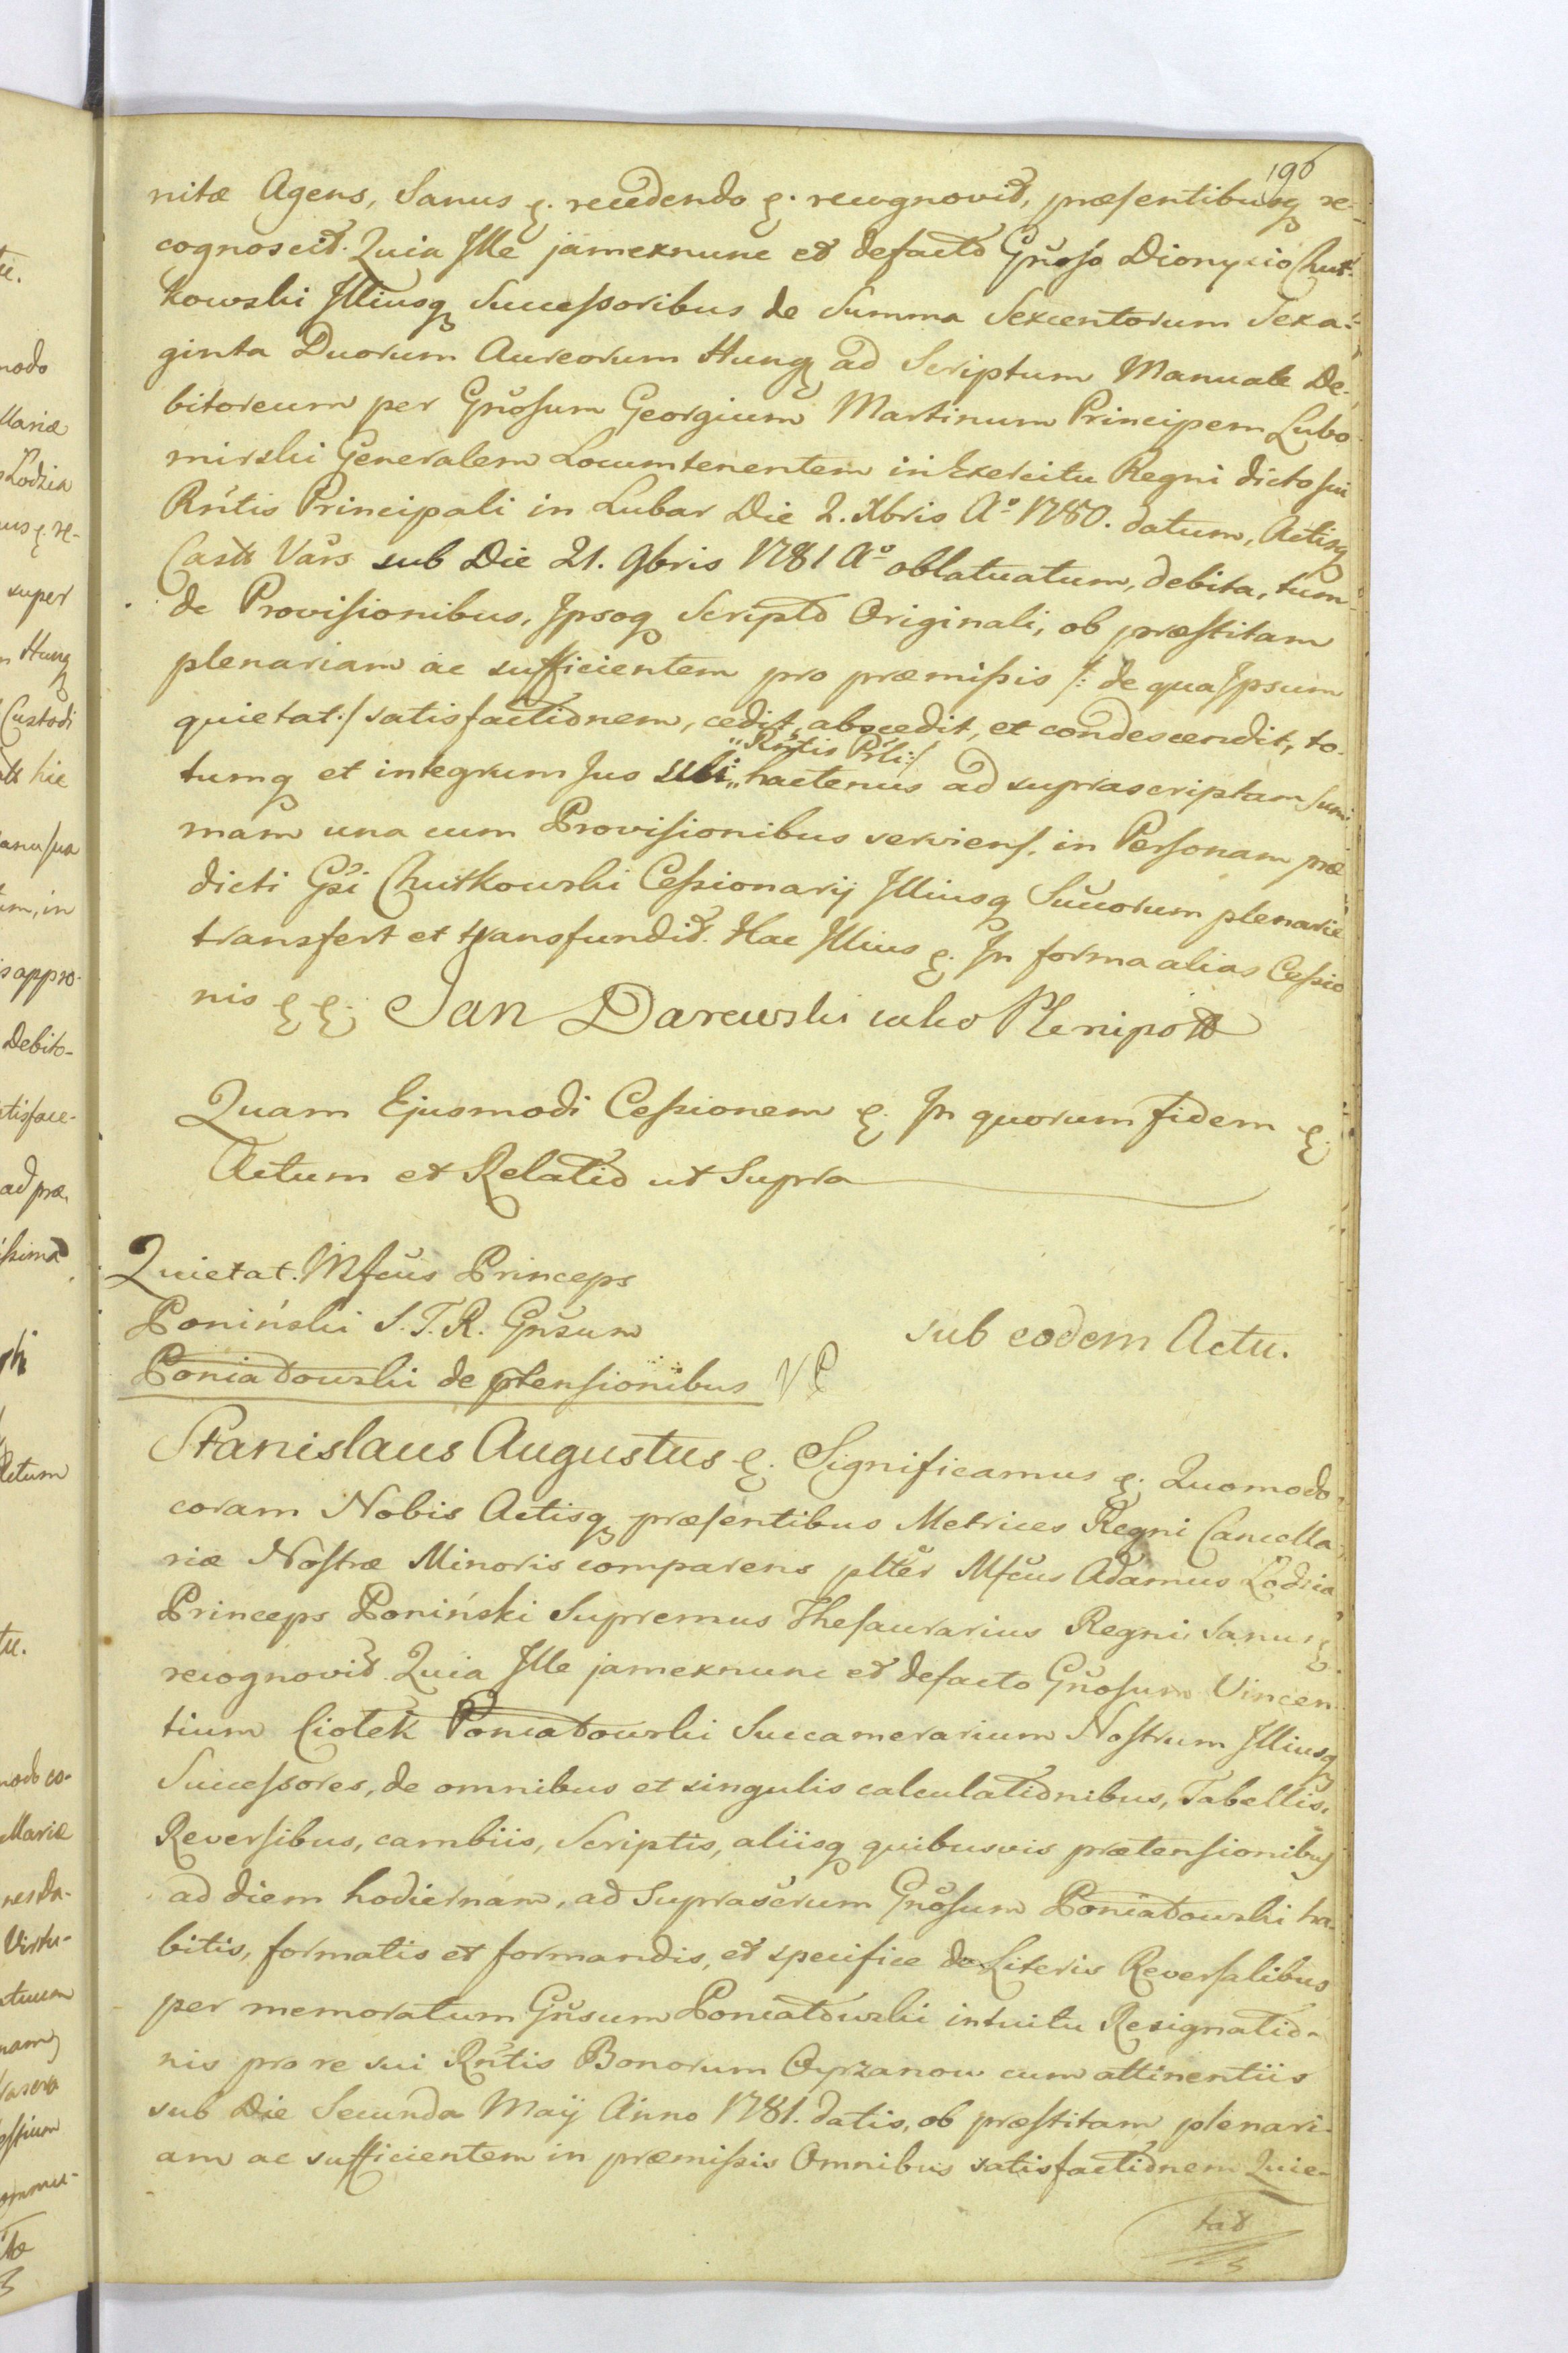 190
nitæ Agens, Sanus ꝛ. recedendo ꝛ. recognovit, præsentibusq re-
cognoscit. Quia Ille jamexnunc et defacto Gnoso Dionysio Chut-
kowski Illiusq Successoribus de Summa Sexcentorum Sexa-
ginta Duorum Aureorum Hung ad Scriptum Manuale De-
bitoreum per Gnosum Georgium Martinum Principem Lubo-
mirski Generalem Locumtenentem in Exercitu Regni dicto sui
Rntis Principali in Lubar Die 2. Xbris Aº 1780. datum, Actisq
Castr Vars sub Die 21. 9bris 1781 Aº oblatuatum, debita, tum
de Provisionibus, Ipsoq Scripto Originali, ob præstitam
plenariam ac sufficientem pro præmissis /: de qua Ipsum
quietat :/ satisfactionem, cedit, abscedit, et condescendit, to-
" Rntis Prli :/
tumq et integrum Jus sibi " hactenus ad suprascriptam Sum-
mam una cum Provisionibus serviens. in Personam præ
dicti Gsi Chutkowski Cessionarij Illiusq Succorum plenarie
transfert et transfundit. Hac Illius ꝛ. In forma alias Cessio
nis ꝛ ꝛ. Jan Darewski iako Plenipott
Quam Ejusmodi Cessionem ꝛ. In quorum fidem ꝛ.
Actum et Relatio ut Supra
Quietat. Mfcus Princeps
Poniński S. T. R. Gnsum
Poniatowski de ptensionibus
sub eodem Actu.
Stanislaus Augustus ꝛ. Significamus ꝛ. Quomodo
coram Nobis Actisq præsentibus Metrices Regni Cancella-
riæ Nostræ Minoris comparens pltter Mfcus Adamus Lodzia
Princeps Poniński Supremus Thesaurarius Regni, Sanus ꝛ
recognovit Quia Ille jamexnunc et defacto Gnosum Vincen-
tium Ciołek Poniatowski Succamerarium Nostrum Illiusq
Successores, de omnibus et singulis calculationibus, Tabellis,
Reversibus, cambiis, Scriptis, aliisq quibusvis prætensionibus
ad diem hodiernam, ad Suprascrum Gnosum Poniatowski ha-
bitis, formatis et formandis, et specifice de Literis Reversalibus
per memoratum Gnsum Poniatowski intuitu Resignatio-
nis pro re sui Rntis Bonorum Oyrzanow cum attinentiis
sub Die Secunda Maij Anno 1781. datis, ob præstitam plenari-
am ac sufficientem in præmissis Omnibus satisfactionem Quie-
tat